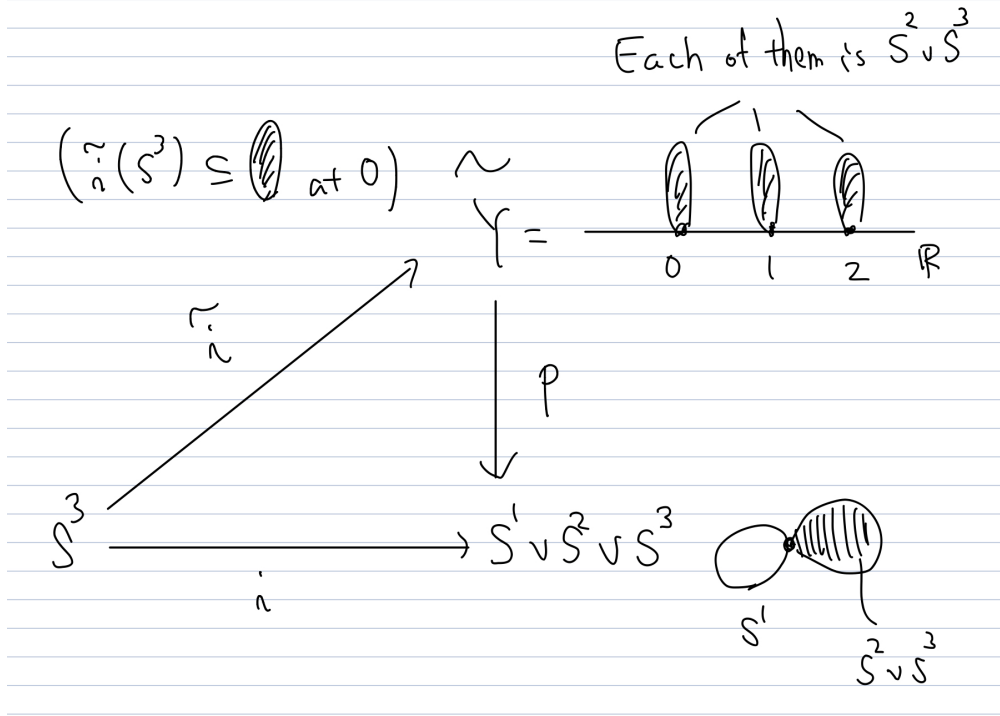 Each of them is S² ∨ S³
(ĩ(S³) ⊆ at 0) Ỹ =
0 1 2 ℝ
ĩ
p
S³ i S¹ ∨ S² ∨ S³
S¹
S² ∨ S³